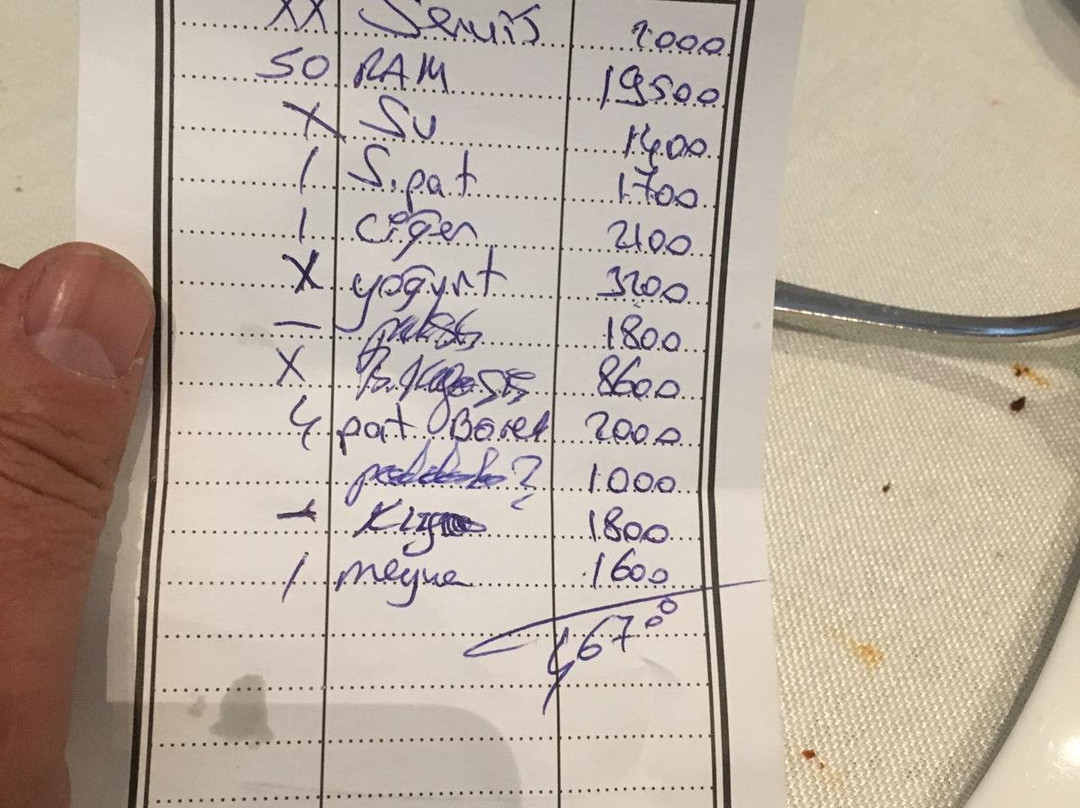 XX Servis 2000
50 RAM 19500
X Su 1400
1 S.pat 1700
1 Ciğer 2100
X yoğurt 3200
— 1800
X 8600
4 pat Börek 2000
1000
1800
1 meyve 1600
467°°